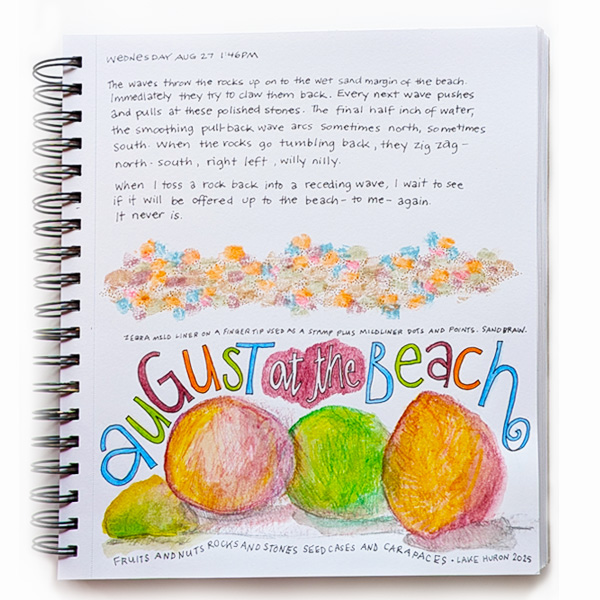 WEDNESDAY AUG 27 1:46PM
The waves throw the rocks up on to the wet sand margin of the beach.
Immediately they try to claw them back. Every next wave pushes
and pulls at these polished stones. The final half inch of water,
the smoothing pull-back wave arcs sometimes north, sometimes
south. When the rocks go tumbling back, they zig zag -
north-south, right left, willy nilly.
When I toss a rock back into a receding wave, I wait to see
if it will be offered up to the beach - to me - again.
It never is.
ZEBRA MILD LINER ON A FINGERTIP USED AS A STAMP PLUS MILDLINER DOTS AND POINTS. SAND DRAWN.
auGUST at the Beach
FRUITS AND NUTS ROCKS AND STONES SEED CASES AND CARAPACES · LAKE HURON 2025